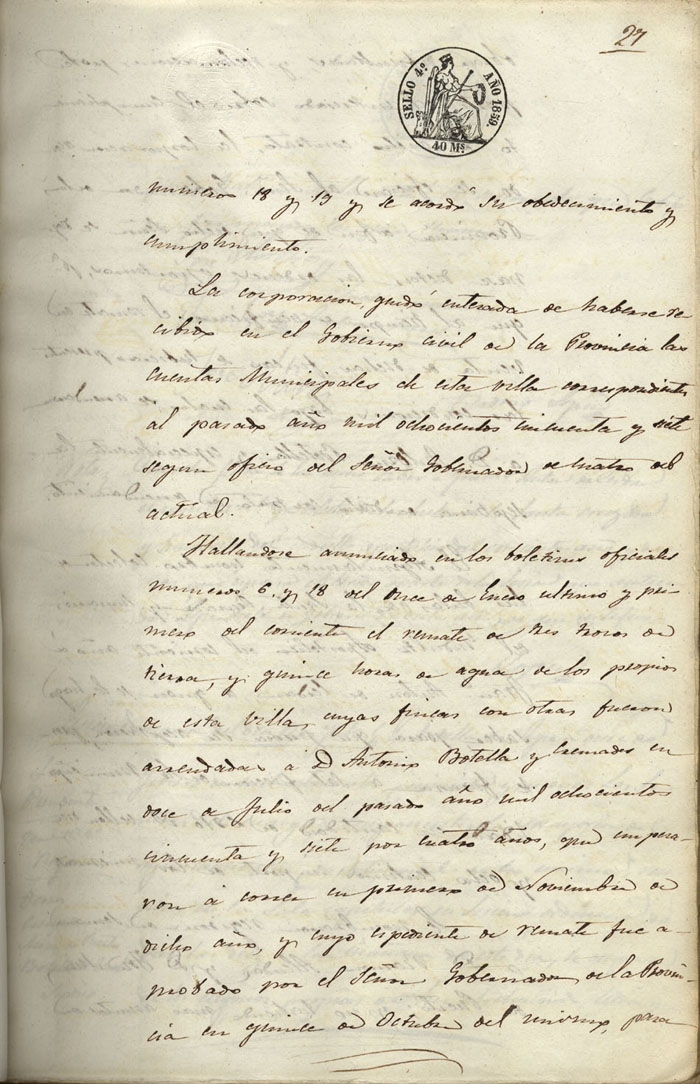 27
SELLO 4º AÑO 1859.
40 Ms
numeros 18 y 19 y se acordó su obedecimiento y
cumplimiento.
La corporacion, quedó enterada de haberse re
cibido en el Gobierno civil de la Provincia las
cuentas Municipales de esta villa correspondientes
al pasado año mil ochocientos cincuenta y siete
segun oficio del Señor Gobernador de cuatro del
actual.
Hallandose anunciado en los boletines oficiales
numeros 6. y 18 del once de Enero ultimo y pri-
mero del corriente el remate de tres trozos de
tierra, y quince horas de agua de los propios
de esta villa, cuyas fincas con otras fueron
arrendadas á D Antonio Botella y Cremades en
doce de Julio del pasado año mil ochocientos
cincuenta y siete por cuatro años, que empeza-
ron á correr en primero de Noviembre de
dicho año, y cuyo espediente de remate fue a-
probado por el Señor Gobernador de la Provin-
cia en quince de Octubre del mismo, para